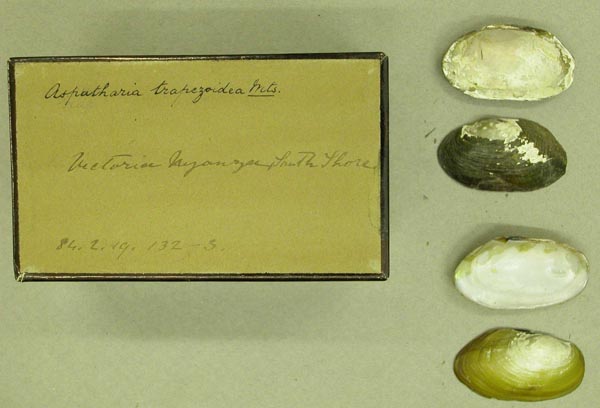 Aspatharia trapezoidea Mts.
Victoria Nyanza, South Shore
84. 2. 19. 132-3.